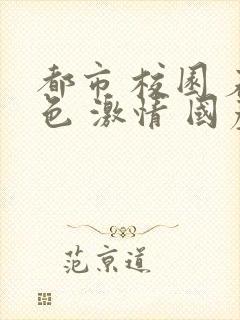 都市 校园 
色 激情 國
范京道